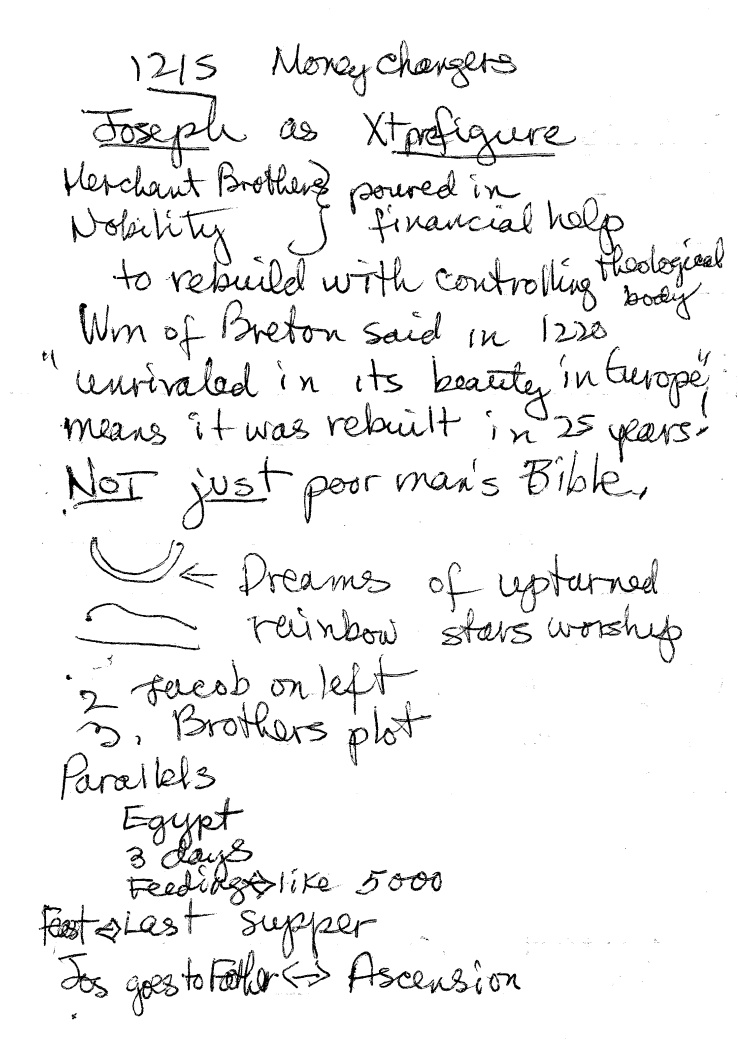 1215 Money changers
Joseph as Xt prefigure
Merchant Brothers } poured in
Nobility } financial help
to rebuild with controlling theological body
Wm of Breton said in 1220
"unrivaled in its beauty in Europe",
means it was rebuilt in 25 years!
NOT just poor man's Bible,
← Dreams of upturned
rainbow stars worship
2 Jacob on left
3. Brothers plot
Parallels
Egypt
3 days
Feeding ↔ like 5000
Feast ⇔ Last supper
Jos goes to Father <-> Ascension